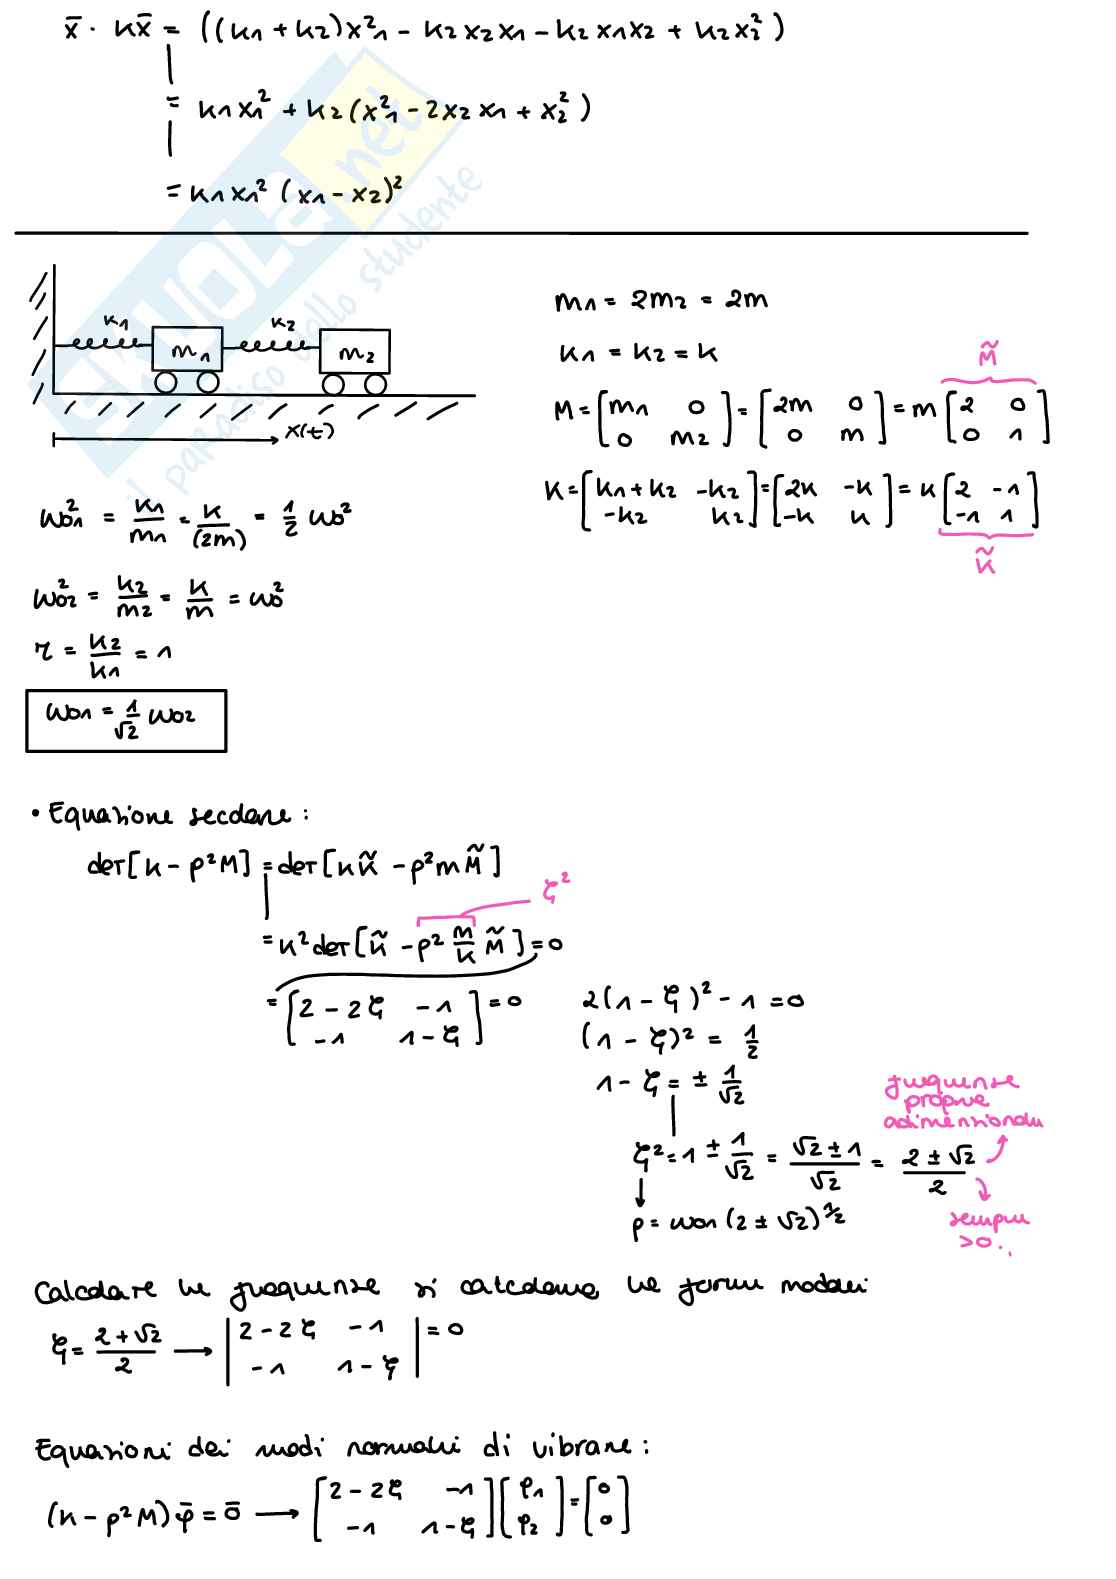 x̄ · kx̄ = ((k1 + k2)x²1 - k2x2x1 - k2x1x2 + k2x2²)
= k1x1² + k2(x²1 - 2x2x1 + x2²)
= k1x1² (x1 - x2)²
SKUOLA.net
il paradiso dello studente
k1 k2
m1 m2
x(t)
m1 = 2m2 = 2m
k1 = k2 = k
M̃
M = [m1 0; 0 m2] = [2m 0; 0 m] = m [2 0; 0 1]
K = [k1+k2 -k2; -k2 k2] = [2k -k; -k k] = k [2 -1; -1 1]
K̃
ω01² = k1/m1 = k/(2m) = 1/2 ω0²
ω02² = k2/m2 = k/m = ω0²
r = k2/k1 = 1
ω01 = 1/√2 ω02
• Equazione secolare:
det[k - p²M] = det[kK̃ - p²mM̃]
ξ²
= k² det[K̃ - p² m/k M̃] = 0
= [2 - 2ξ -1; -1 1 - ξ] = 0
2(1 - ξ)² - 1 = 0
(1 - ξ)² = 1/2
1 - ξ = ± 1/√2
ξ² = 1 ± 1/√2 = (√2 ± 1)/√2 = (2 ± √2)/2
frequenze
proprie
adimensionali
sempre
>0..
p = ω01 (2 ± √2)^1/2
Calcolare le frequenze si calcolano le forme modali
ξ = (2 + √2)/2 → |2 - 2ξ -1; -1 1 - ξ| = 0
Equazioni dei modi normali di vibrare:
(k - p²M)φ̄ = 0̄ → [2 - 2ξ -1; -1 1 - ξ] [φ1; φ2] = [0; 0]